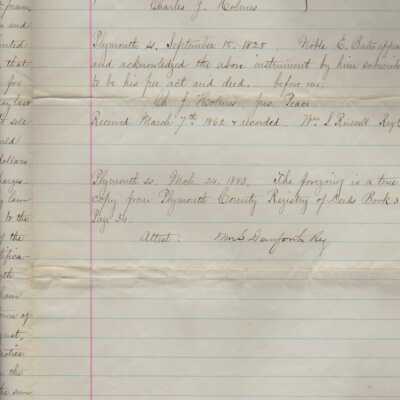 from
Charles J. Holmes
and
Plymouth ss, September 15, 1825. Noble E. Bates appea
that
and acknowledged the above instrument by him subscribe
for
to be his free act and deed, before me.
law
Ch. J. Holmes jus. Peace
to sell
Received March 7th 1862 & recorded Wm S Russell Reg
dollars
Plymouth ss. Mch. 24. 1893. The foregoing is a true
copy from Plymouth County Registry of Deeds Book 3
to the
Page 34.
of the
Attest: Wm S Danforth Reg
of
the
the